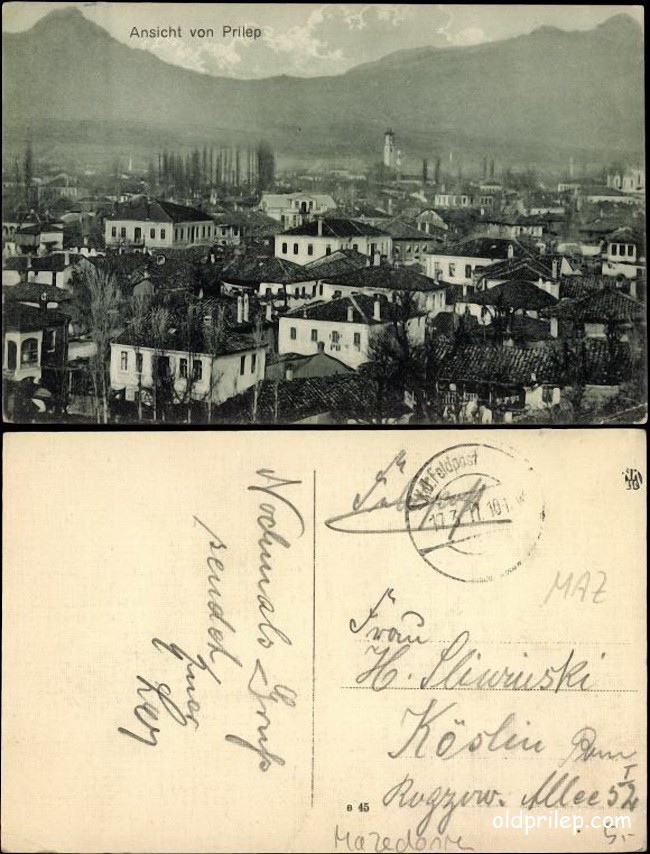 Ansicht von Prilep
Nochmals Gruß
sendet
Feldpost
Kd. Feldpost
17.3.17. 10-1
MAZ
Frau
H. Sliwinski
Köslin Pom
Rogzow. Allee 52 I
e 45
Mazedonien
5.-
oldprilep.com